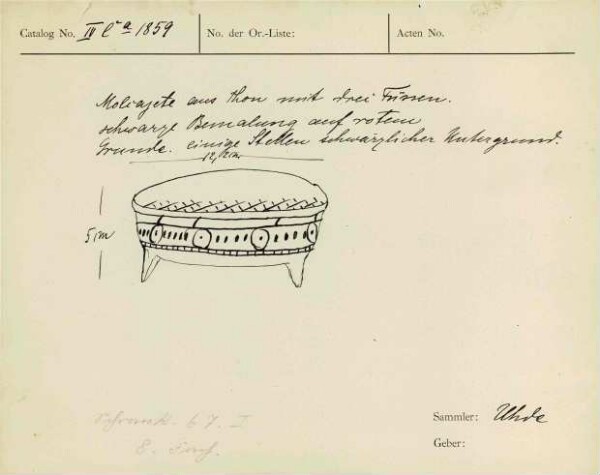 Catalog No. IV Ca 1859
No. der Or.-Liste:
Acten No.
Molcajete aus Thon mit drei Füssen.
schwarze Bemalung auf rotem
Grunde. einige Stellen schwärzlicher Untergrund.
12,2 cm
5 cm
Schrank. 67. I
8. Fach.
Sammler: Uhde
Geber: